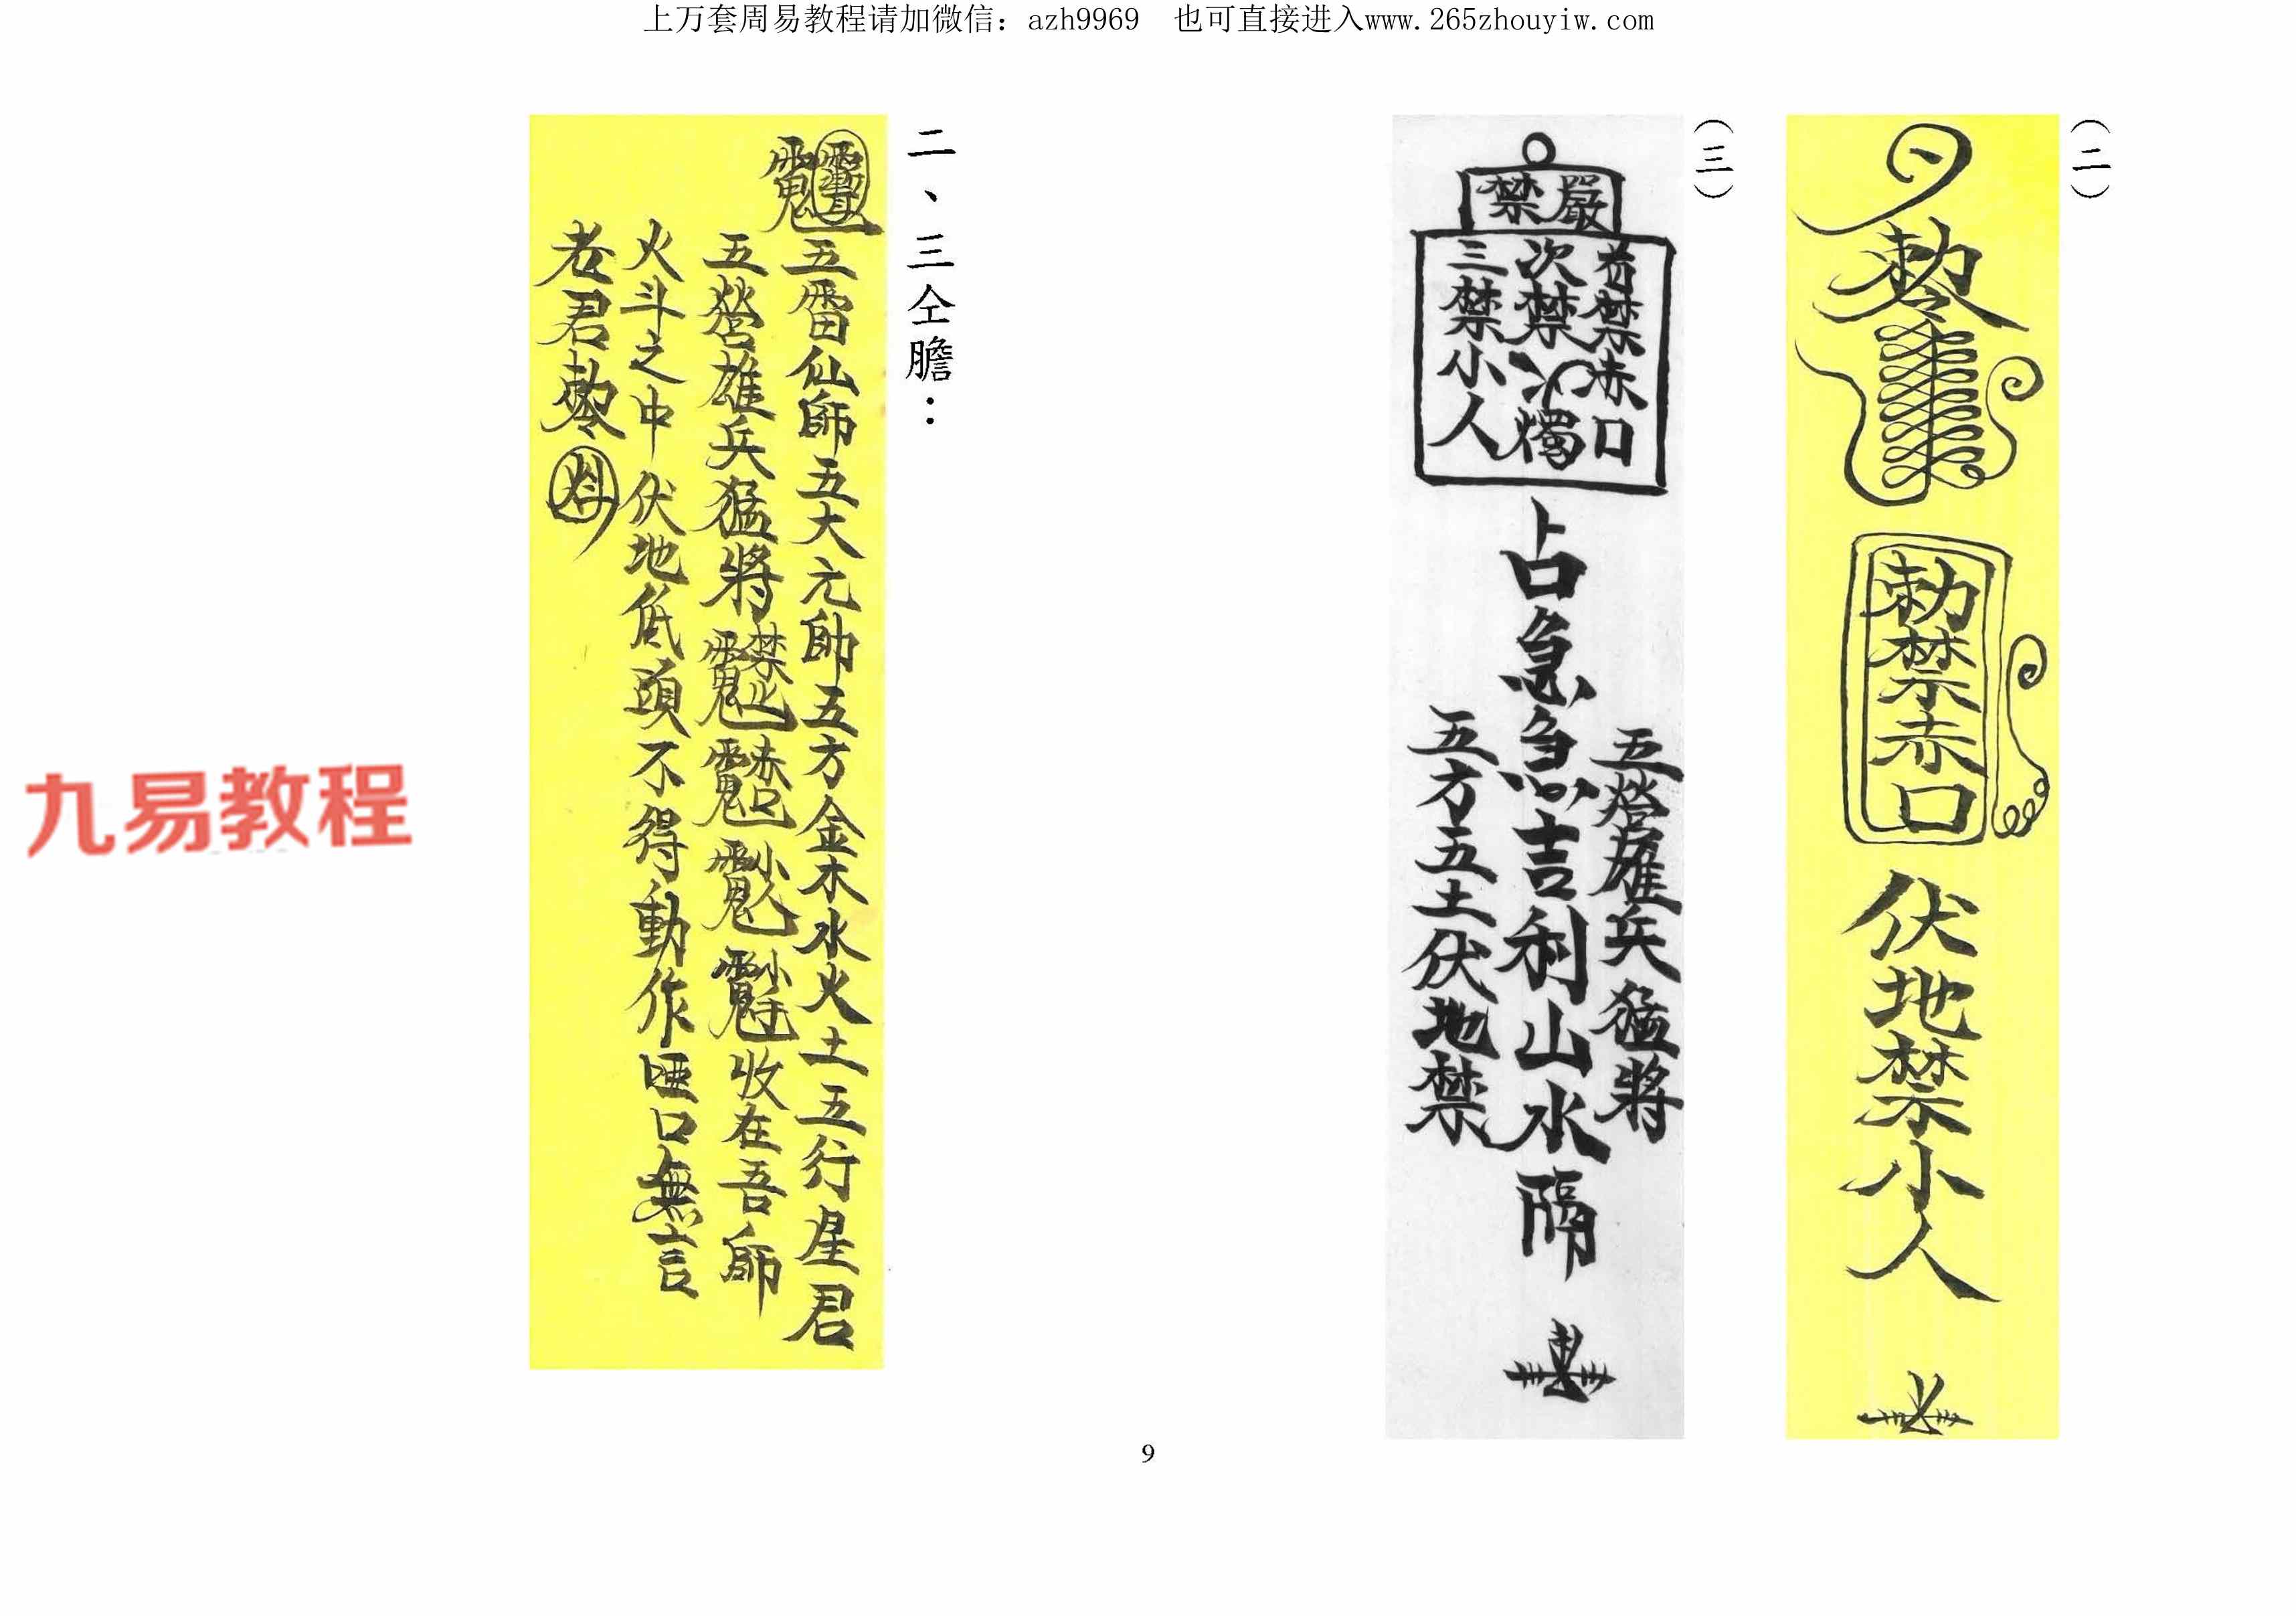 上万套周易教程请加微信：azh9969　也可直接进入www.265zhouyiw.com
（二）
勅
勅禁赤口
伏地禁小人
（三）
嚴禁
首禁赤口
次禁
三禁小人
占急急吉利山水隔
五營雄兵猛將
五方五土伏地禁
二、三仝膽：
五雷仙師五大元帥五方金木水火土五行星君
五營雄兵猛將
收在吾師
火斗之中伏地低頭不得動作啞口無言
老君勅
九易教程
9